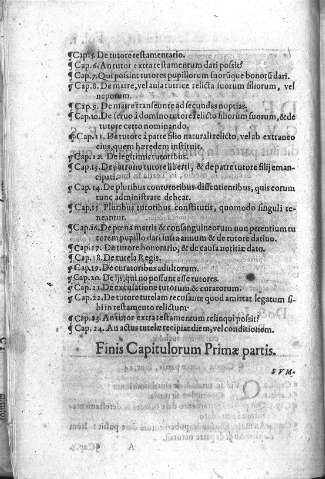 ¶Cap.5. De tutore testamentario.
¶Cap.6. An tutor extra testamentum dari possit?
¶Cap.7. Qui possint tutores pupillorum suorūque bonorū dari.
¶Cap.8. De matre, vel auia tutrice relicta suorum filiorum, vel
nepotum.
¶Cap.9. De matre transeunte ad secundas nuptias.
¶Cap.10. De seruo à domino tutore relicto filiorum suorum, & de
tutore certo nominando.
¶Cap.11. De tutore à patre filio naturali relicto, vel ab extraneo
eius, quem heredem instituit.
¶Cap.12. De legitimis tutoribus.
¶Cap.13. De patrono tutore liberti, & de patre tutore filij eman-
cipati.
¶Cap.14. De pluribus contutoribus dissentientibus, quis eorum
tunc administrare debeat.
¶Cap.15. Pluribus tutoribus constitutis, quomodo singuli te-
neantur.
¶Cap.16. De pœna matris & consanguineorum non petentium tu
torem pupillo dari intra annum & de tutore datiuo.
¶Cap.17. De tutore honorario, & de causæ notitia dato.
¶Cap.18. De tutela Regis.
¶Cap.19. De curatoribus adultorum.
¶Cap.20. De ijs, qui no possunt esse tutores.
¶Cap.21. De excusatione tutorum & curatorum.
¶Cap.22. De tutore tutelam recusante quod amittat legatum si-
bi in testamento relictum.
¶Cap.23. An tutor extra testamentum relinqui possit?
¶Cap.24. An actus tutelæ recipiat diem, vel conditionem.
Finis Capitulorum Primæ partis.
SVM-